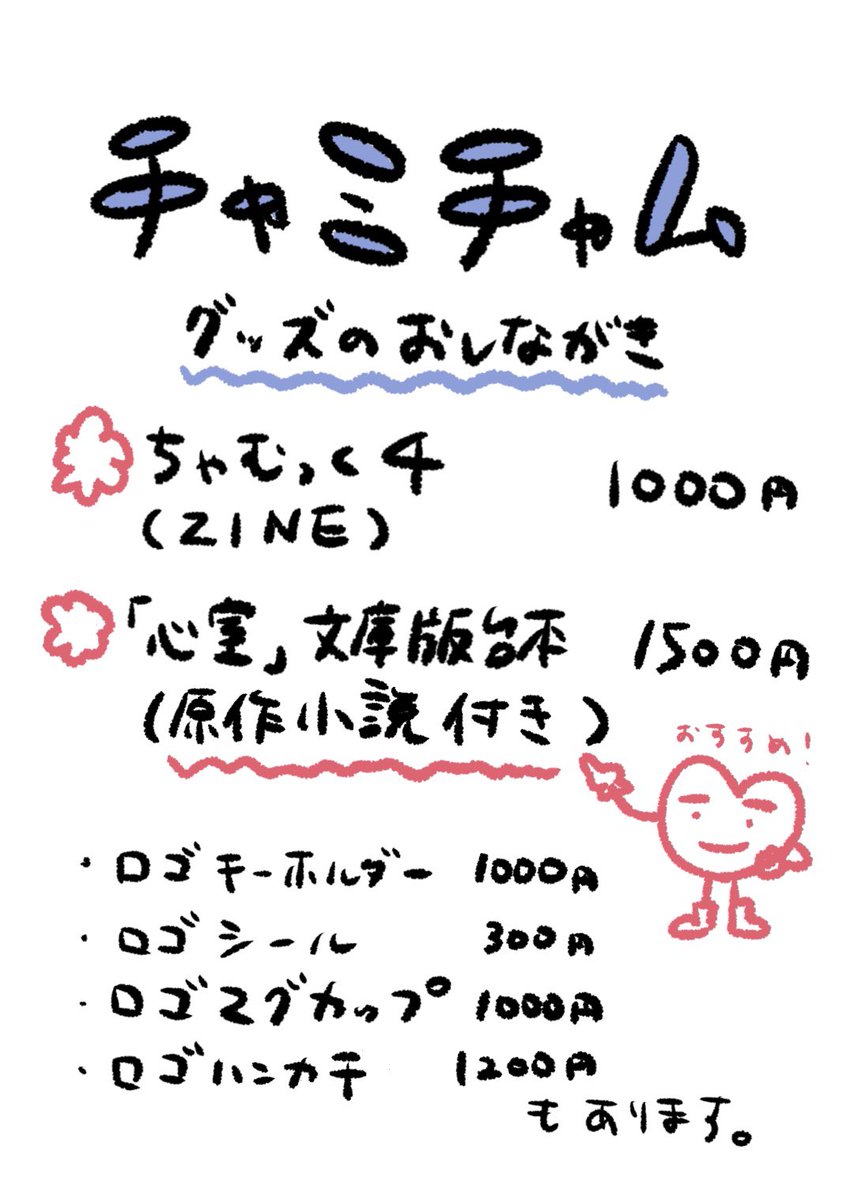 チャミチャム
グッズのおしながき
ちゃむっく4 1000円
(ZINE)
「心室」文庫版台本 1500円
(原作小説付き)
おすすめ!
・ロゴキーホルダー 1000円
・ロゴシール 300円
・ロゴマグカップ 1000円
・ロゴハンカチ 1200円
もあります。